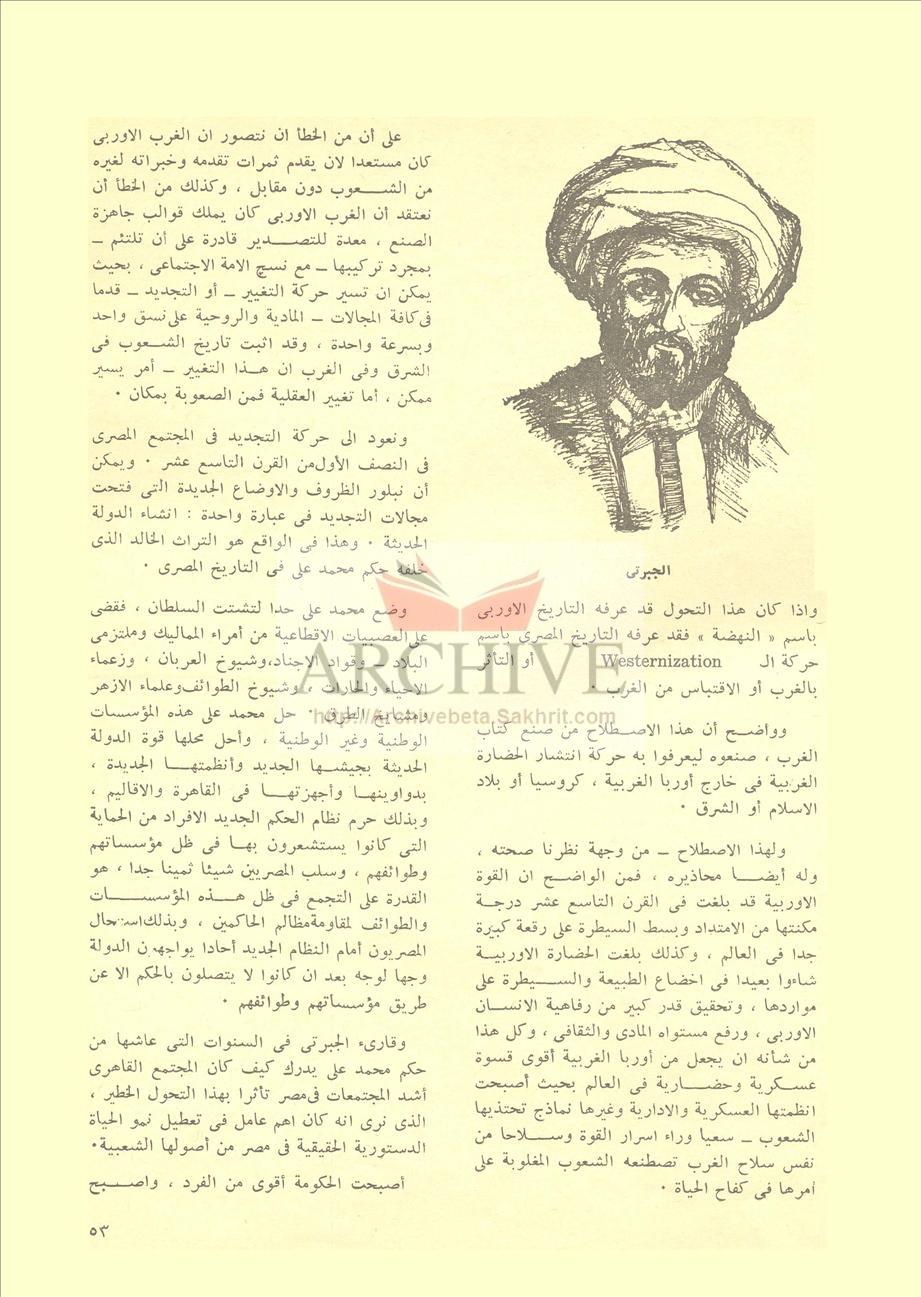 الجبرتى
واذا كان هذا التحول قد عرفه التاريخ الاوربى
باسم « النهضة » فقد عرفه التاريخ المصرى باسم
حركة الـ Westernization أو التأثر
بالغرب أو الاقتباس من الغرب ٠
وواضح أن هذا الاصطلاح من صنع كتاب
الغرب ، صنعوه ليعرفوا به حركة انتشار الحضارة
الغربية فى خارج أوربا الغربية ، كروسيا أو بلاد
الاسلام أو الشرق ٠
ولهذا الاصطلاح ــ من وجهة نظرنا صحته ،
وله أيضا محاذيره ، فمن الواضح ان القوة
الاوربية قد بلغت فى القرن التاسع عشر درجة
مكنتها من الامتداد وبسط السيطرة على رقعة كبيرة
جدا فى العالم ، وكذلك بلغت الحضارة الاوربية
شاءوا بعيدا فى اخضاع الطبيعة والسيطرة على
مواردها ، وتحقيق قدر كبير من رفاهية الانسان
الاوربى ، ورفع مستواه المادى والثقافى ، وكل هذا
من شأنه ان يجعل من أوربا الغربية أقوى قسوة
عسكرية وحضارية فى العالم بحيث أصبحت
انظمتها العسكرية والادارية وغيرها نماذج تحتذيها
الشعوب ــ سعيا وراء اسرار القوة وسلاحا من
نفس سلاح الغرب تصطنعه الشعوب المغلوبة على
أمرها فى كفاح الحياة ٠
على أن من الخطأ ان نتصور ان الغرب الاوربى
كان مستعدا لان يقدم ثمرات تقدمه وخبراته لغيره
من الشعوب دون مقابل ، وكذلك من الخطأ أن
نعتقد أن الغرب الاوربى كان يملك قوالب جاهزة
الصنع ، معدة للتصدير قادرة على أن تلتئم ــ
بمجرد تركيبها ــ مع نسج الامة الاجتماعى ، بحيث
يمكن ان تسير حركة التغيير ــ أو التجديد ــ قدما
فى كافة المجالات ــ المادية والروحية على نسق واحد
وبسرعة واحدة ، وقد اثبت تاريخ الشعوب فى
الشرق وفى الغرب ان هذا التغيير ــ أمر يسير
ممكن ، أما تغيير العقلية فمن الصعوبة بمكان ٠
ونعود الى حركة التجديد فى المجتمع المصرى
فى النصف الأول من القرن التاسع عشر ٠ ويمكن
أن نبلور الظروف والاوضاع الجديدة التى فتحت
مجالات التجديد فى عبارة واحدة : انشاء الدولة
الحديثة ٠ وهذا فى الواقع هو التراث الخالد الذى
خلفه حكم محمد على فى التاريخ المصرى ٠
وضع محمد على حدا لتشتت السلطان ، فقضى
على العصبيات الاقطاعية من أمراء المماليك وملتزمى
البلاد ، وقواد الاجناد، وشيوخ العربان ، وزعماء
الاحياء والحارات ، وشيوخ الطوائف وعلماء الازهر
ومشايخ الطرق ٠ حل محمد على هذه المؤسسات
الوطنية وغير الوطنية ، وأحل محلها قوة الدولة
الحديثة بجيشها الجديد وأنظمتها الجديدة ،
بدواوينها وأجهزتها فى القاهرة والاقاليم ،
وبذلك حرم نظام الحكم الجديد الافراد من الحماية
التى كانوا يستشعرون بها فى ظل مؤسساتهم
وطوائفهم ، وسلب المصريين شيئا ثمينا جدا ، هو
القدرة على التجمع فى ظل هذه المؤسسات
والطوائف لمقاومة مظالم الحاكمين ، وبذلك استحال
المصريون أمام النظام الجديد أحادا يواجهون الدولة
وجها لوجه بعد ان كانوا لا يتصلون بالحكم الا عن
طريق مؤسساتهم وطوائفهم ٠
وقارىء الجبرتى فى السنوات التى عاشها من
حكم محمد على يدرك كيف كان المجتمع القاهرى
أشد المجتمعات فى مصر تأثرا بهذا التحول الخطير ،
الذى نرى انه كان اهم عامل فى تعطيل نمو الحياة
الدستورية الحقيقية فى مصر من أصولها الشعبية٠
أصبحت الحكومة أقوى من الفرد ، واصبح
٥٣
ARCHIVE
http://Archivebeta.Sakhrit.com